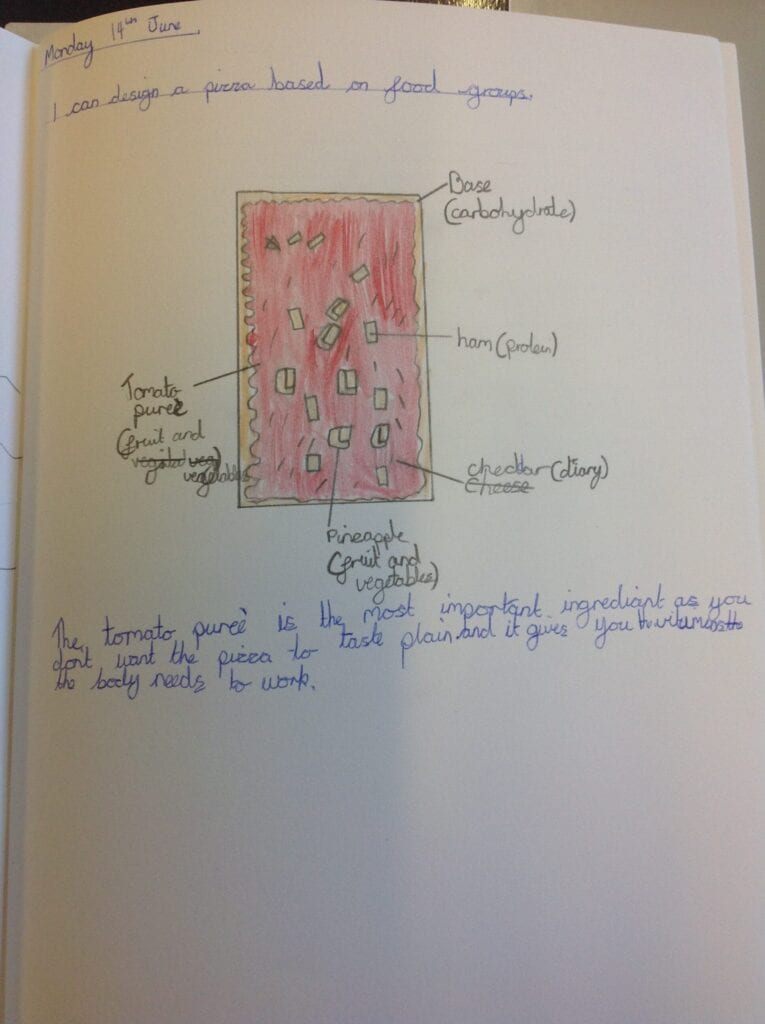 Monday 14th June
I can design a pizza based on food groups.
Base
(carbohydrate)
ham (protein)
Tomato
pureè
(fruit and
vegetables)
cheddar (diary)
Cheese
Pineapple
(fruit and
vegetables)
The tomato pureè is the most important ingrediant as you
dont want the pizza to taste plain and it gives you
the body needs to work.